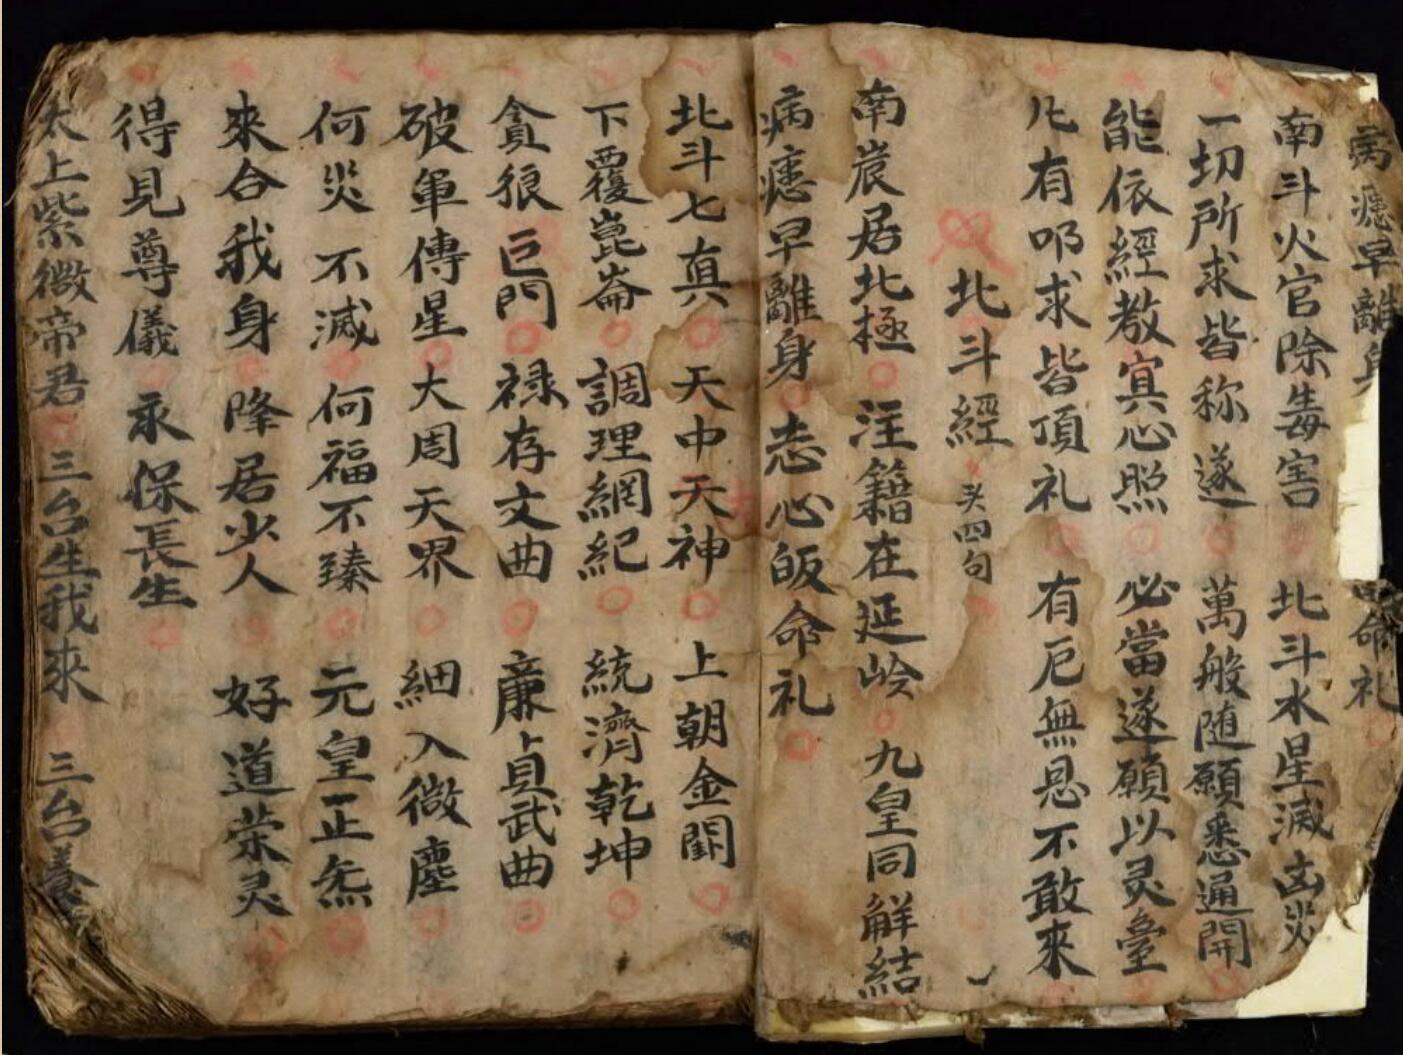 病㾗早離身 命礼
南斗火官除毒害 北斗水星滅凶災
一切所求皆称遂 萬般随願悉通開
能依經教寘心照 必當遂願以灵臺
凡有叩求皆頂礼 有厄無恳不敢來
北斗經 头四句
南宸居北極 注籍在延岭 九皇同觧結
病㾗早離身 志心皈命礼
北斗七真 天中天神 上朝金闕
下覆崑崙 調理網紀 統濟乾坤
貪狼巨門 禄存文曲 廉貞武曲
破軍傳星 大周天界 細入微塵
何災不滅 何福不臻 元皇正炁
來合我身 降居少人 好道荣灵
得見尊儀 永保長生
太上紫微帝君 三台生我來 三台養